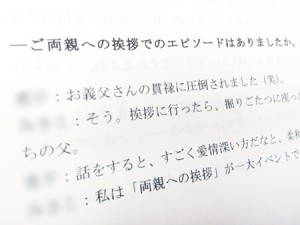 ―ご両親への挨拶でのエピソードはありましたか。
：お義父さんの貫禄に圧倒されました（笑）。
：そう。挨拶に行ったら、掘りごたつに座った
ちの父。
：話をすると、すごく愛情深い方だなと、柔和
：私は「両親への挨拶」が一大イベントで